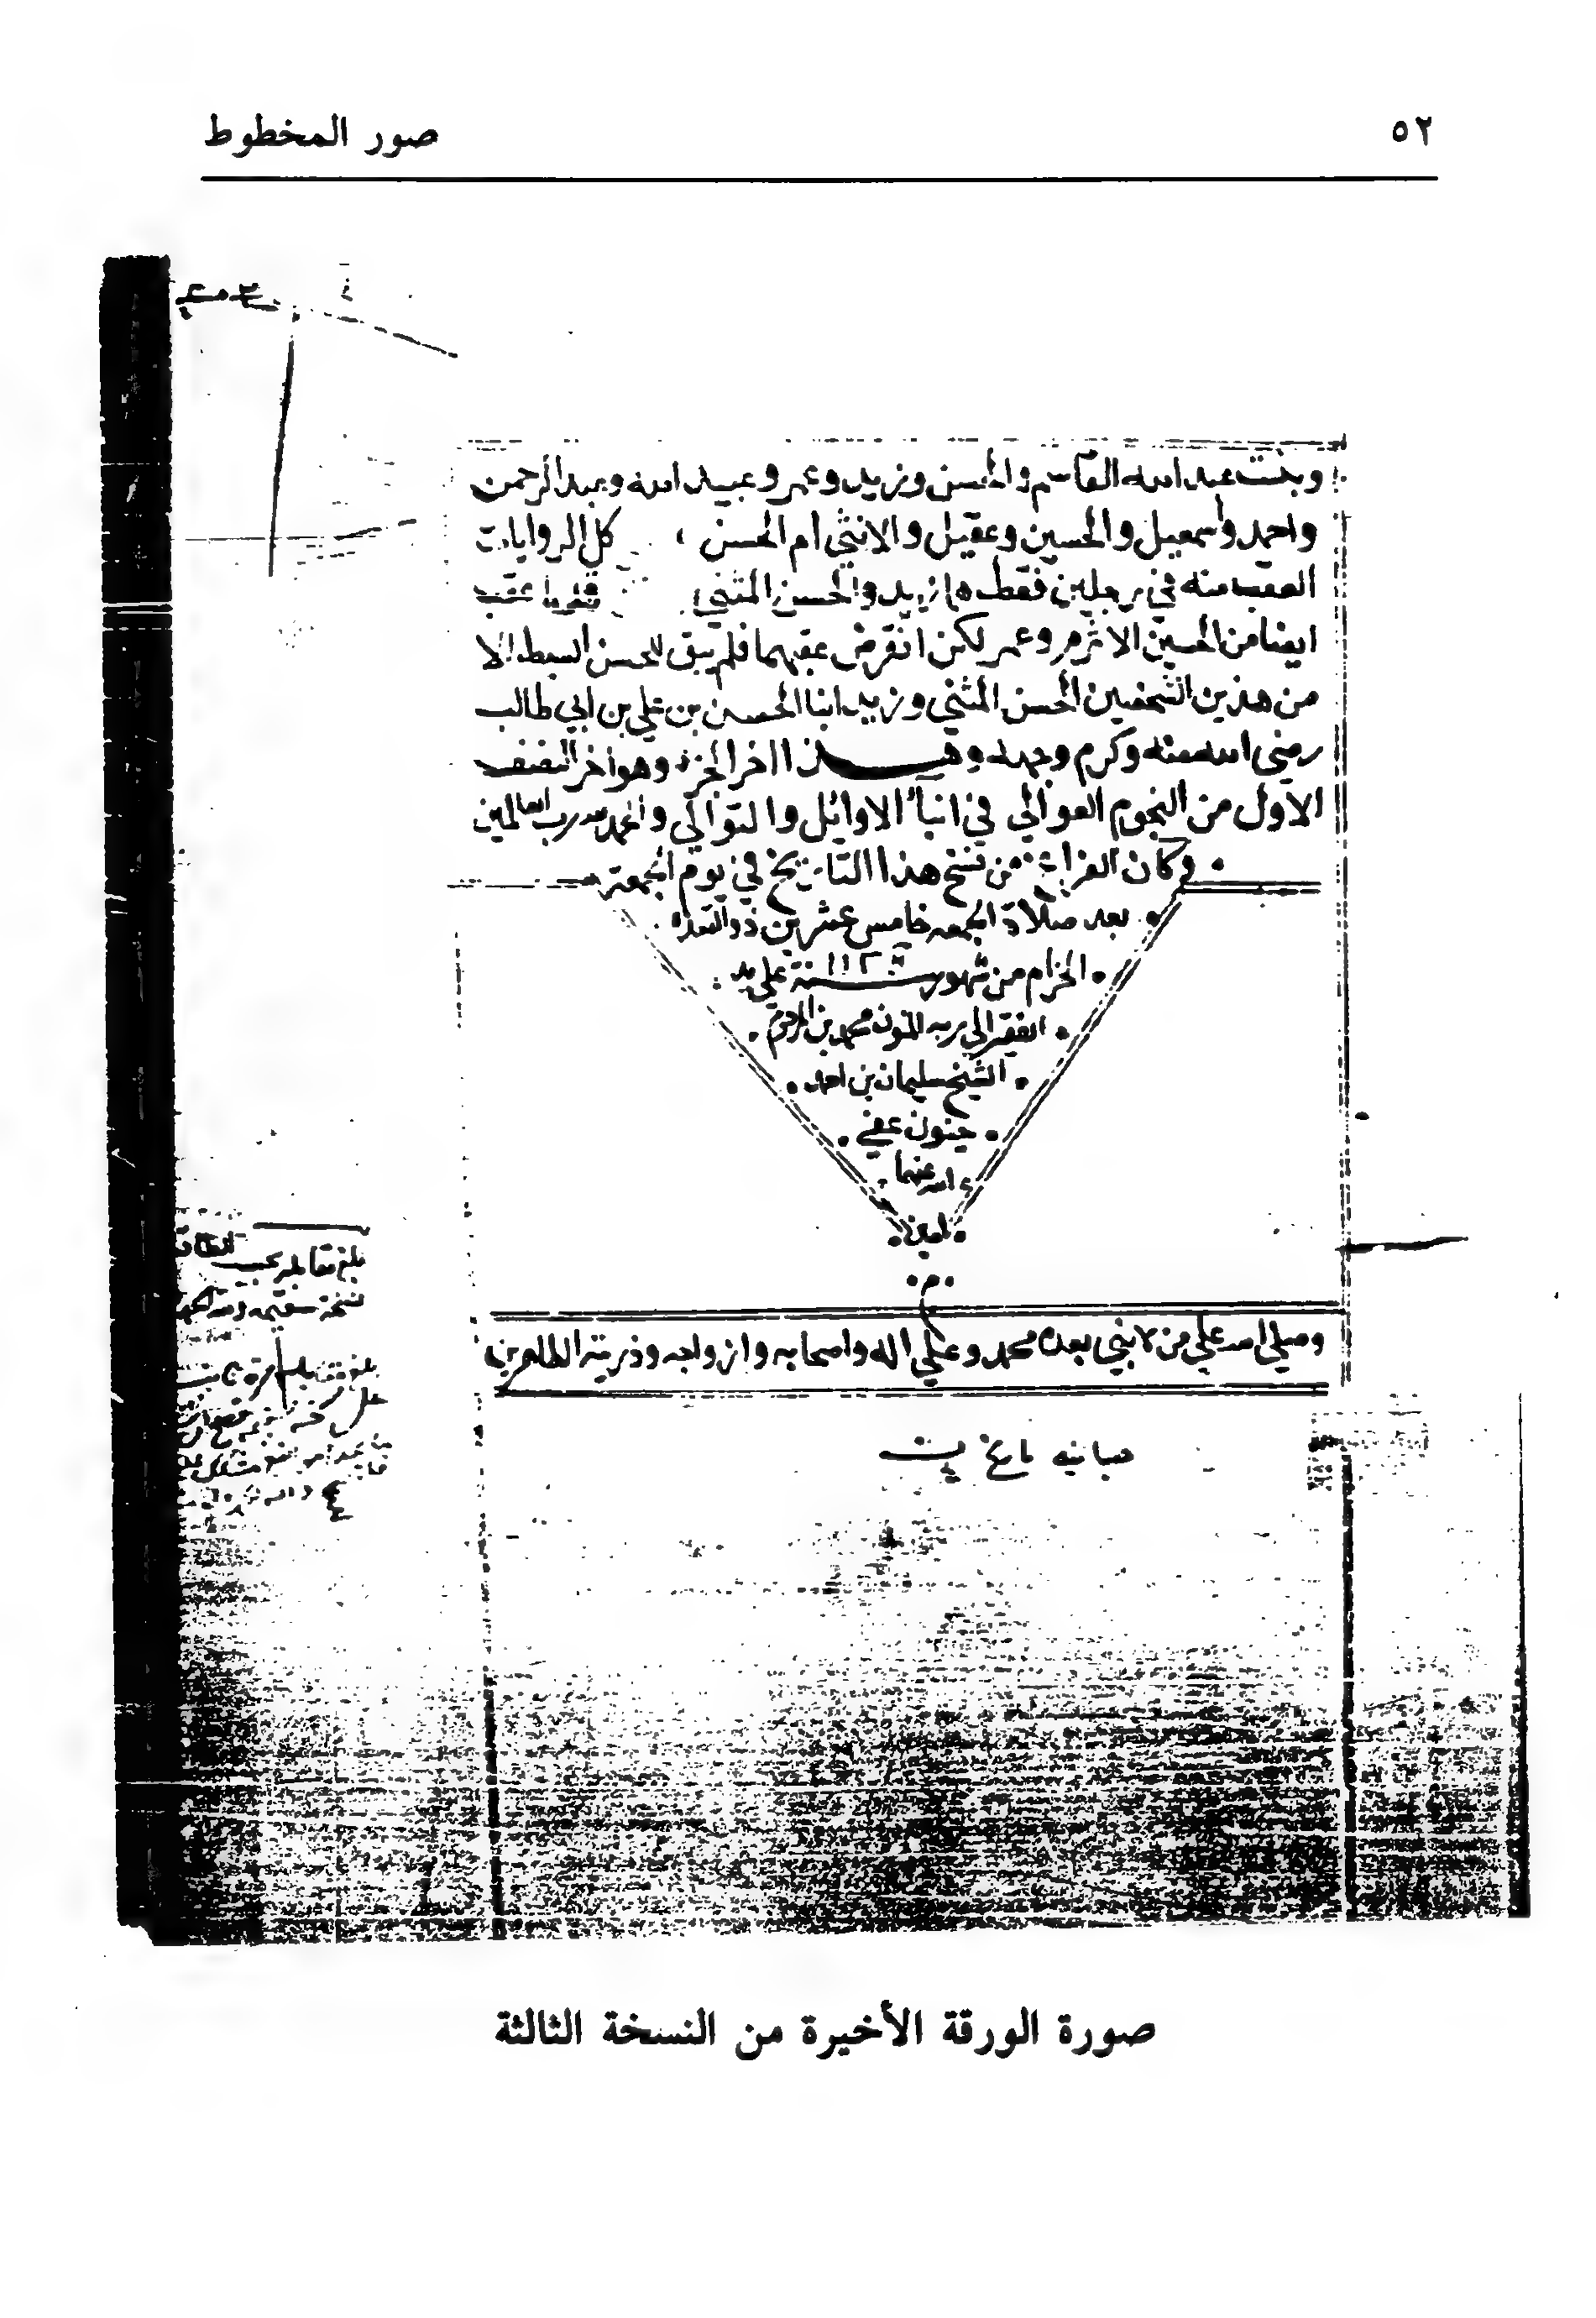 ٥٢
صور المخطوط
عبد الله القاسم والحسن وزيد وعمر وعبيد الله وعبد الرحمن
واحمد واسمعيل والحسين وعقيل والانثى ام الحسن كل الروايات
العقب منه في رجلين فقط هما زيد والحسن المثنى عقب
ايضا من الحسين الاثرم وعمر لكن انقرض عقبهما فلم يبق للحسن السبط الا
من هذين الشخصين الحسن المثني وزيد ابنا الحسن بن علي بن ابي طالب
رضي الله عنه وكرم وجهه وهذا اخر الجزء وهو اخر النصف
الاول من النجوم العوالي في انباء الاوائل والتوالي والحمد لله رب العالمين
وكان الفراغ من نسخ هذا التاريخ في يوم الجمعة
بعد صلاة الجمعه خامس عشرين ذو القعدة
الحرام من شهور سنة علي يد
الفقير الي ربه محمد بن المرحوم
الشيخ سليمان بن احمد
عفي
الله عنهما
امين
م
وصلي الله علي من لا نبي بعده محمد وعلي اله واصحابه وازواجه وذريته الطاهرين
بلغ مقابلة بحسب الطاقة
نسخة سقيمه
بلغ مقابلة مرة
صورة الورقة الأخيرة من النسخة الثالثة